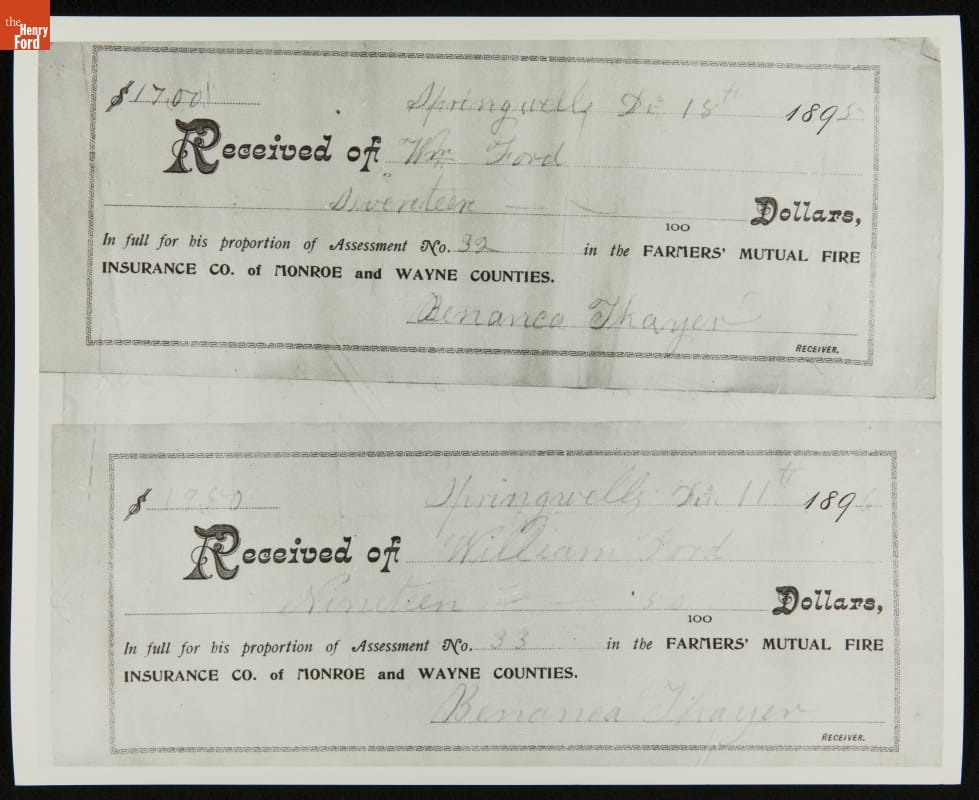 the Henry Ford
$17.00 Springwells De 18th 1895
Received of Wm Ford
Seventeen
100 Dollars,
In full for his proportion of Assessment No. 32 in the FARMERS' MUTUAL FIRE
INSURANCE CO. of MONROE and WAYNE COUNTIES.
Benanca Thayer
RECEIVER.
$ 1950 Springwells Dec 11th 1896
Received of William Ford
Nineteen 50
100 Dollars,
In full for his proportion of Assessment No. 33 in the FARMERS' MUTUAL FIRE
INSURANCE CO. of MONROE and WAYNE COUNTIES.
Benanca Thayer
RECEIVER.